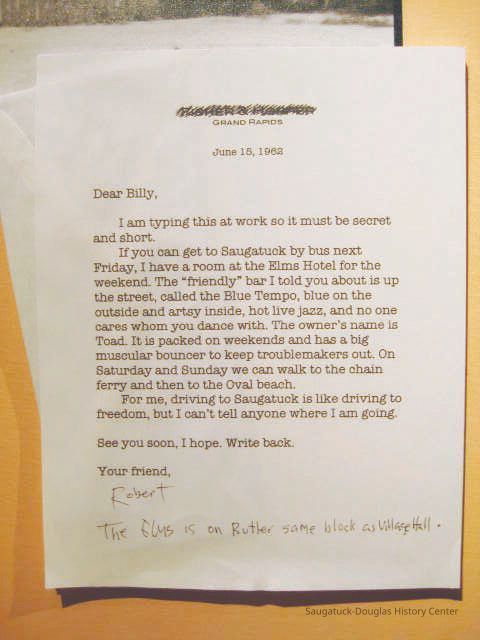 GRAND RAPIDS
June 15, 1962
Dear Billy,
I am typing this at work so it must be secret
and short.
If you can get to Saugatuck by bus next
Friday, I have a room at the Elms Hotel for the
weekend. The “friendly” bar I told you about is up
the street, called the Blue Tempo, blue on the
outside and artsy inside, hot live jazz, and no one
cares whom you dance with. The owner’s name is
Toad. It is packed on weekends and has a big
muscular bouncer to keep troublemakers out. On
Saturday and Sunday we can walk to the chain
ferry and then to the Oval beach.
For me, driving to Saugatuck is like driving to
freedom, but I can’t tell anyone where I am going.
See you soon, I hope. Write back.
Your friend,
Robert
The Elms is on Butler same block as Village Hall.
Saugatuck-Douglas History Center